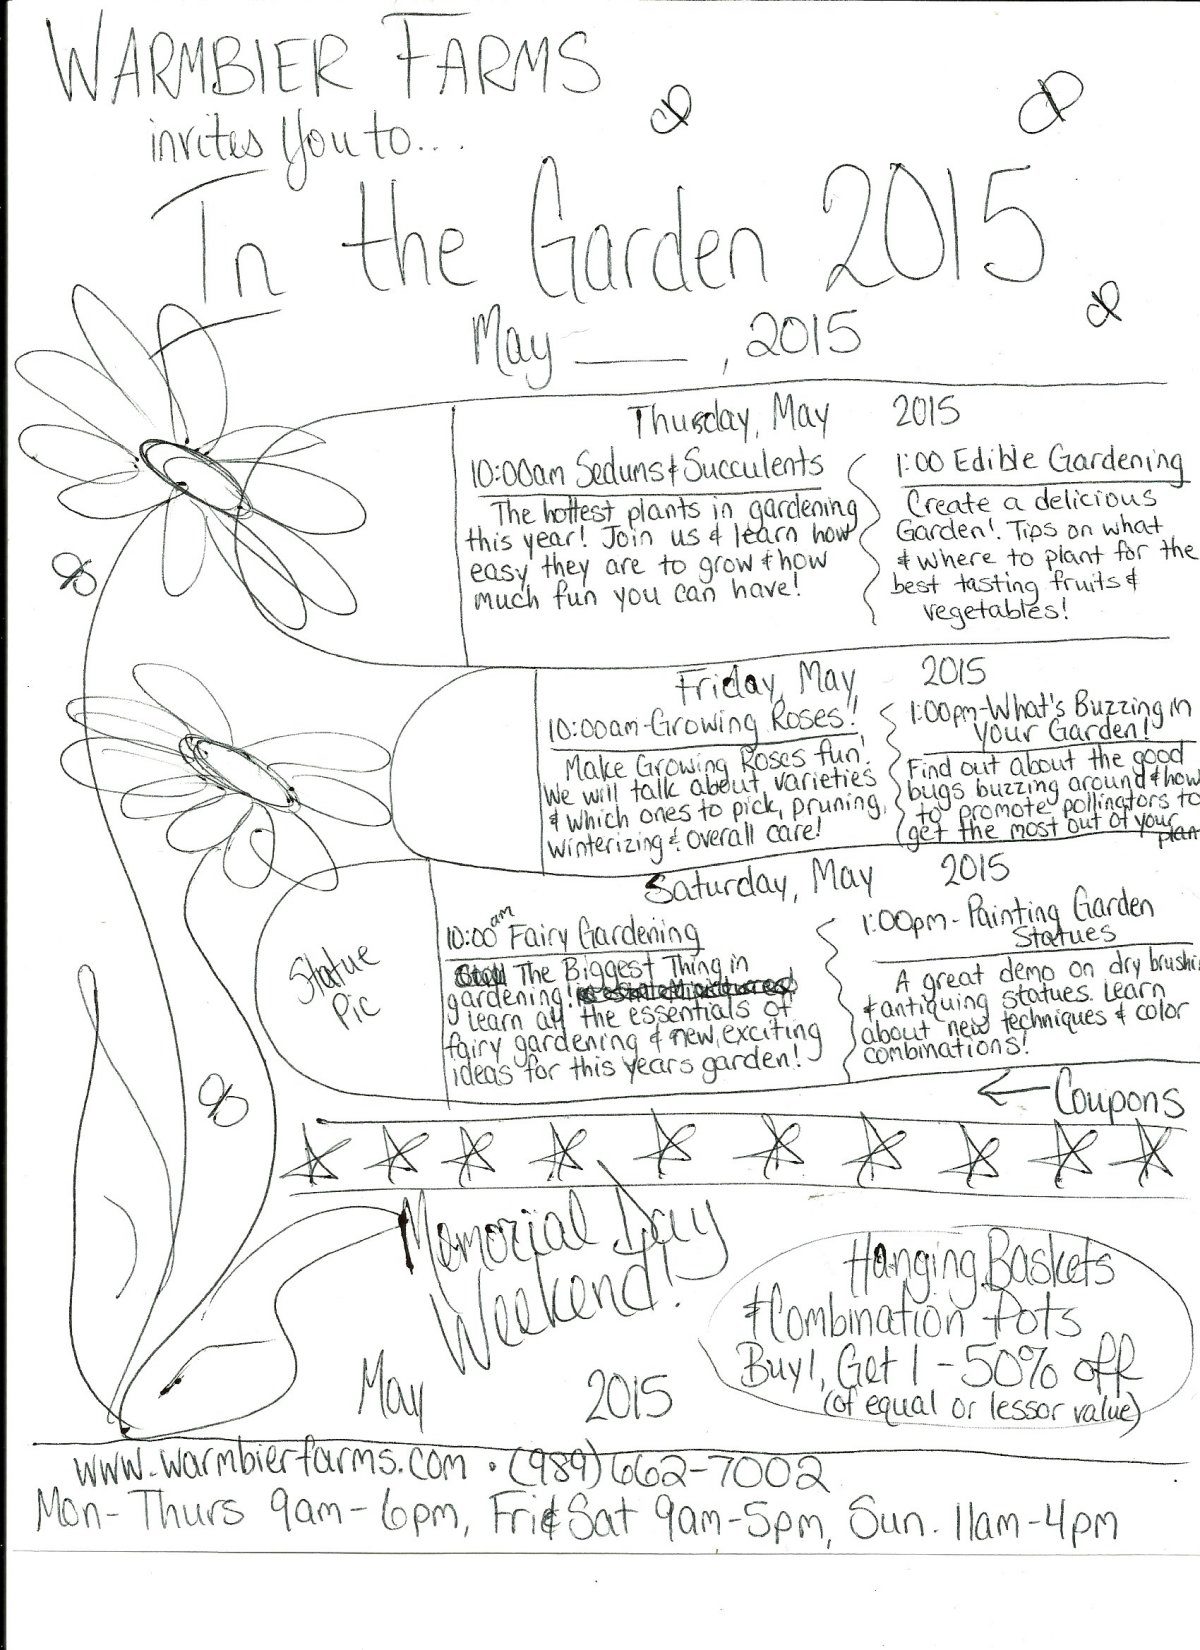 WARMBIER FARMS
invites you to...
In the Garden 2015
May ____, 2015
Thursday, May 2015
10:00am Sedums & Succulents
The hottest plants in gardening
this year! Join us & learn how
easy they are to grow & how
much fun you can have!
1:00 Edible Gardening
Create a delicious
Garden! Tips on what
& where to plant for the
best tasting fruits &
vegetables!
Friday, May 2015
10:00am-Growing Roses!
Make Growing Roses fun!
We will talk about varieties
& which ones to pick, pruning,
winterizing & overall care!
1:00pm-What's Buzzing in
Your Garden!
Find out about the good
bugs buzzing around & how
to promote pollinators to
get the most out of your
plan
Saturday, May 2015
Statue
Pic
10:00am Fairy Gardening
The Biggest Thing in
gardening!
Learn all the essentials of
fairy gardening & new, exciting
ideas for this years garden!
1:00pm- Painting Garden
Statues
A great demo on dry brushi
& antiquing statues. Learn
about new techniques & color
combinations!
← Coupons
Memorial Day
Weekend!
May 2015
Hanging Baskets
& Combination Pots
Buy 1, Get 1 - 50% off
(of equal or lessor value)
www.warmbierfarms.com • (989)662-7002
Mon-Thurs 9am-6pm, Fri & Sat 9am-5pm, Sun. 11am-4pm